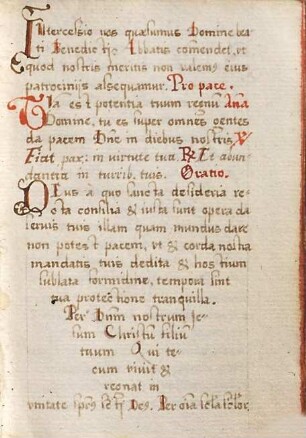 Intercessio nos quæsumus Domine bea-
ti Benedictj Abbatis comendet, vt
quod nostris meritis non valemꝰ eius
patrocinijs alsequamur. Pro pace. Aña
Tua est potentia tuum regnũ
Domine, tu es super omnes gentes
da pacem Dñe in diebus nostris. ℣
Fiat pax: in virtute tua. ℟ Et abun
dantia in turrib. tuis. Oratio.
Deus à quo sancta desideria re-
cta consilia & iusta sunt opera da
seruis tuis illam quam mundus dare
non potest pacem, vt & corda nostra
mandatis tuis dedita & hostium
sublata formidine, tempora sint
tua protectione tranquilla.
Per Dñm nostrum Ie-
sum Christũ filiũ
tuum Qui te-
cum viuit &
regnat in
vnitate